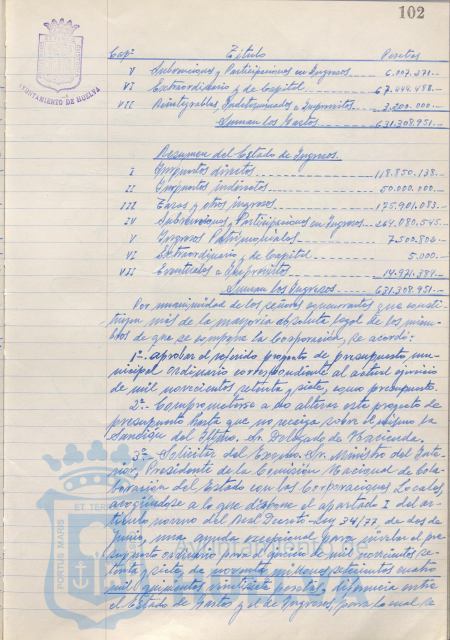 102
AYUNTAMIENTO DE HUELVA
Capº Título Pesetas
V Subvenciones y Participaciones en Ingresos 6.007.471.-
VI Extraordinario y de Capital 67.444.488.-
VII Reintegrables, Indeterminados e Imprevistos 3.200.000.-
Suman los Gastos 631.308.951.-
Resumen del Estado de Ingresos.
I Impuestos directos 118.850.138.-
II Impuestos indirectos 50.000.100.-
III Tasas y otros ingresos 175.901.083.-
IV Subvenciones, Participaciones en Ingresos 264.080.545.-
V Ingresos Patrimoniales 7.500.800.-
VI Extraordinario y de Capital 5.000.-
VII Eventuales e Imprevistos 14.971.384.-
Suman los Ingresos 631.308.951.-
Por unanimidad de los señores concurrentes, que consti-
tuyen más de la mayoría absoluta legal de los miem-
bros de que se compone la Corporación, se acordó:
1º- aprobar el referido proyecto de presupuesto mu-
nicipal ordinario correspondiente al actual ejercicio
de mil novecientos setenta y siete, como presupuesto.
2º- Comprometerse a no alterar este proyecto de
presupuesto hasta que no recaiga sobre el mismo la
Sanción del Iltmo. Sr. Delegado de Hacienda.
3º- Solicitar del Excmo. Sr. Ministro del Inte-
rior, Presidente de la Comisión Nacional de Cola-
boración del Estado con las Corporaciones Locales,
acogiéndose a lo que dispone el apartado I del ar-
tículo noveno del Real Decreto-Ley 34/77, de dos de
Junio, una ayuda excepcional para nivelar el pre-
supuesto ordinario para el ejercicio de mil novecientos se-
tenta y siete, de noventa millones setecientos cuatro
mil quinientas veintisiete pesetas, diferencia entre
el Estado de Gastos y el de Ingresos, para lo cual se
PORTUS MARIS
ET TERRE